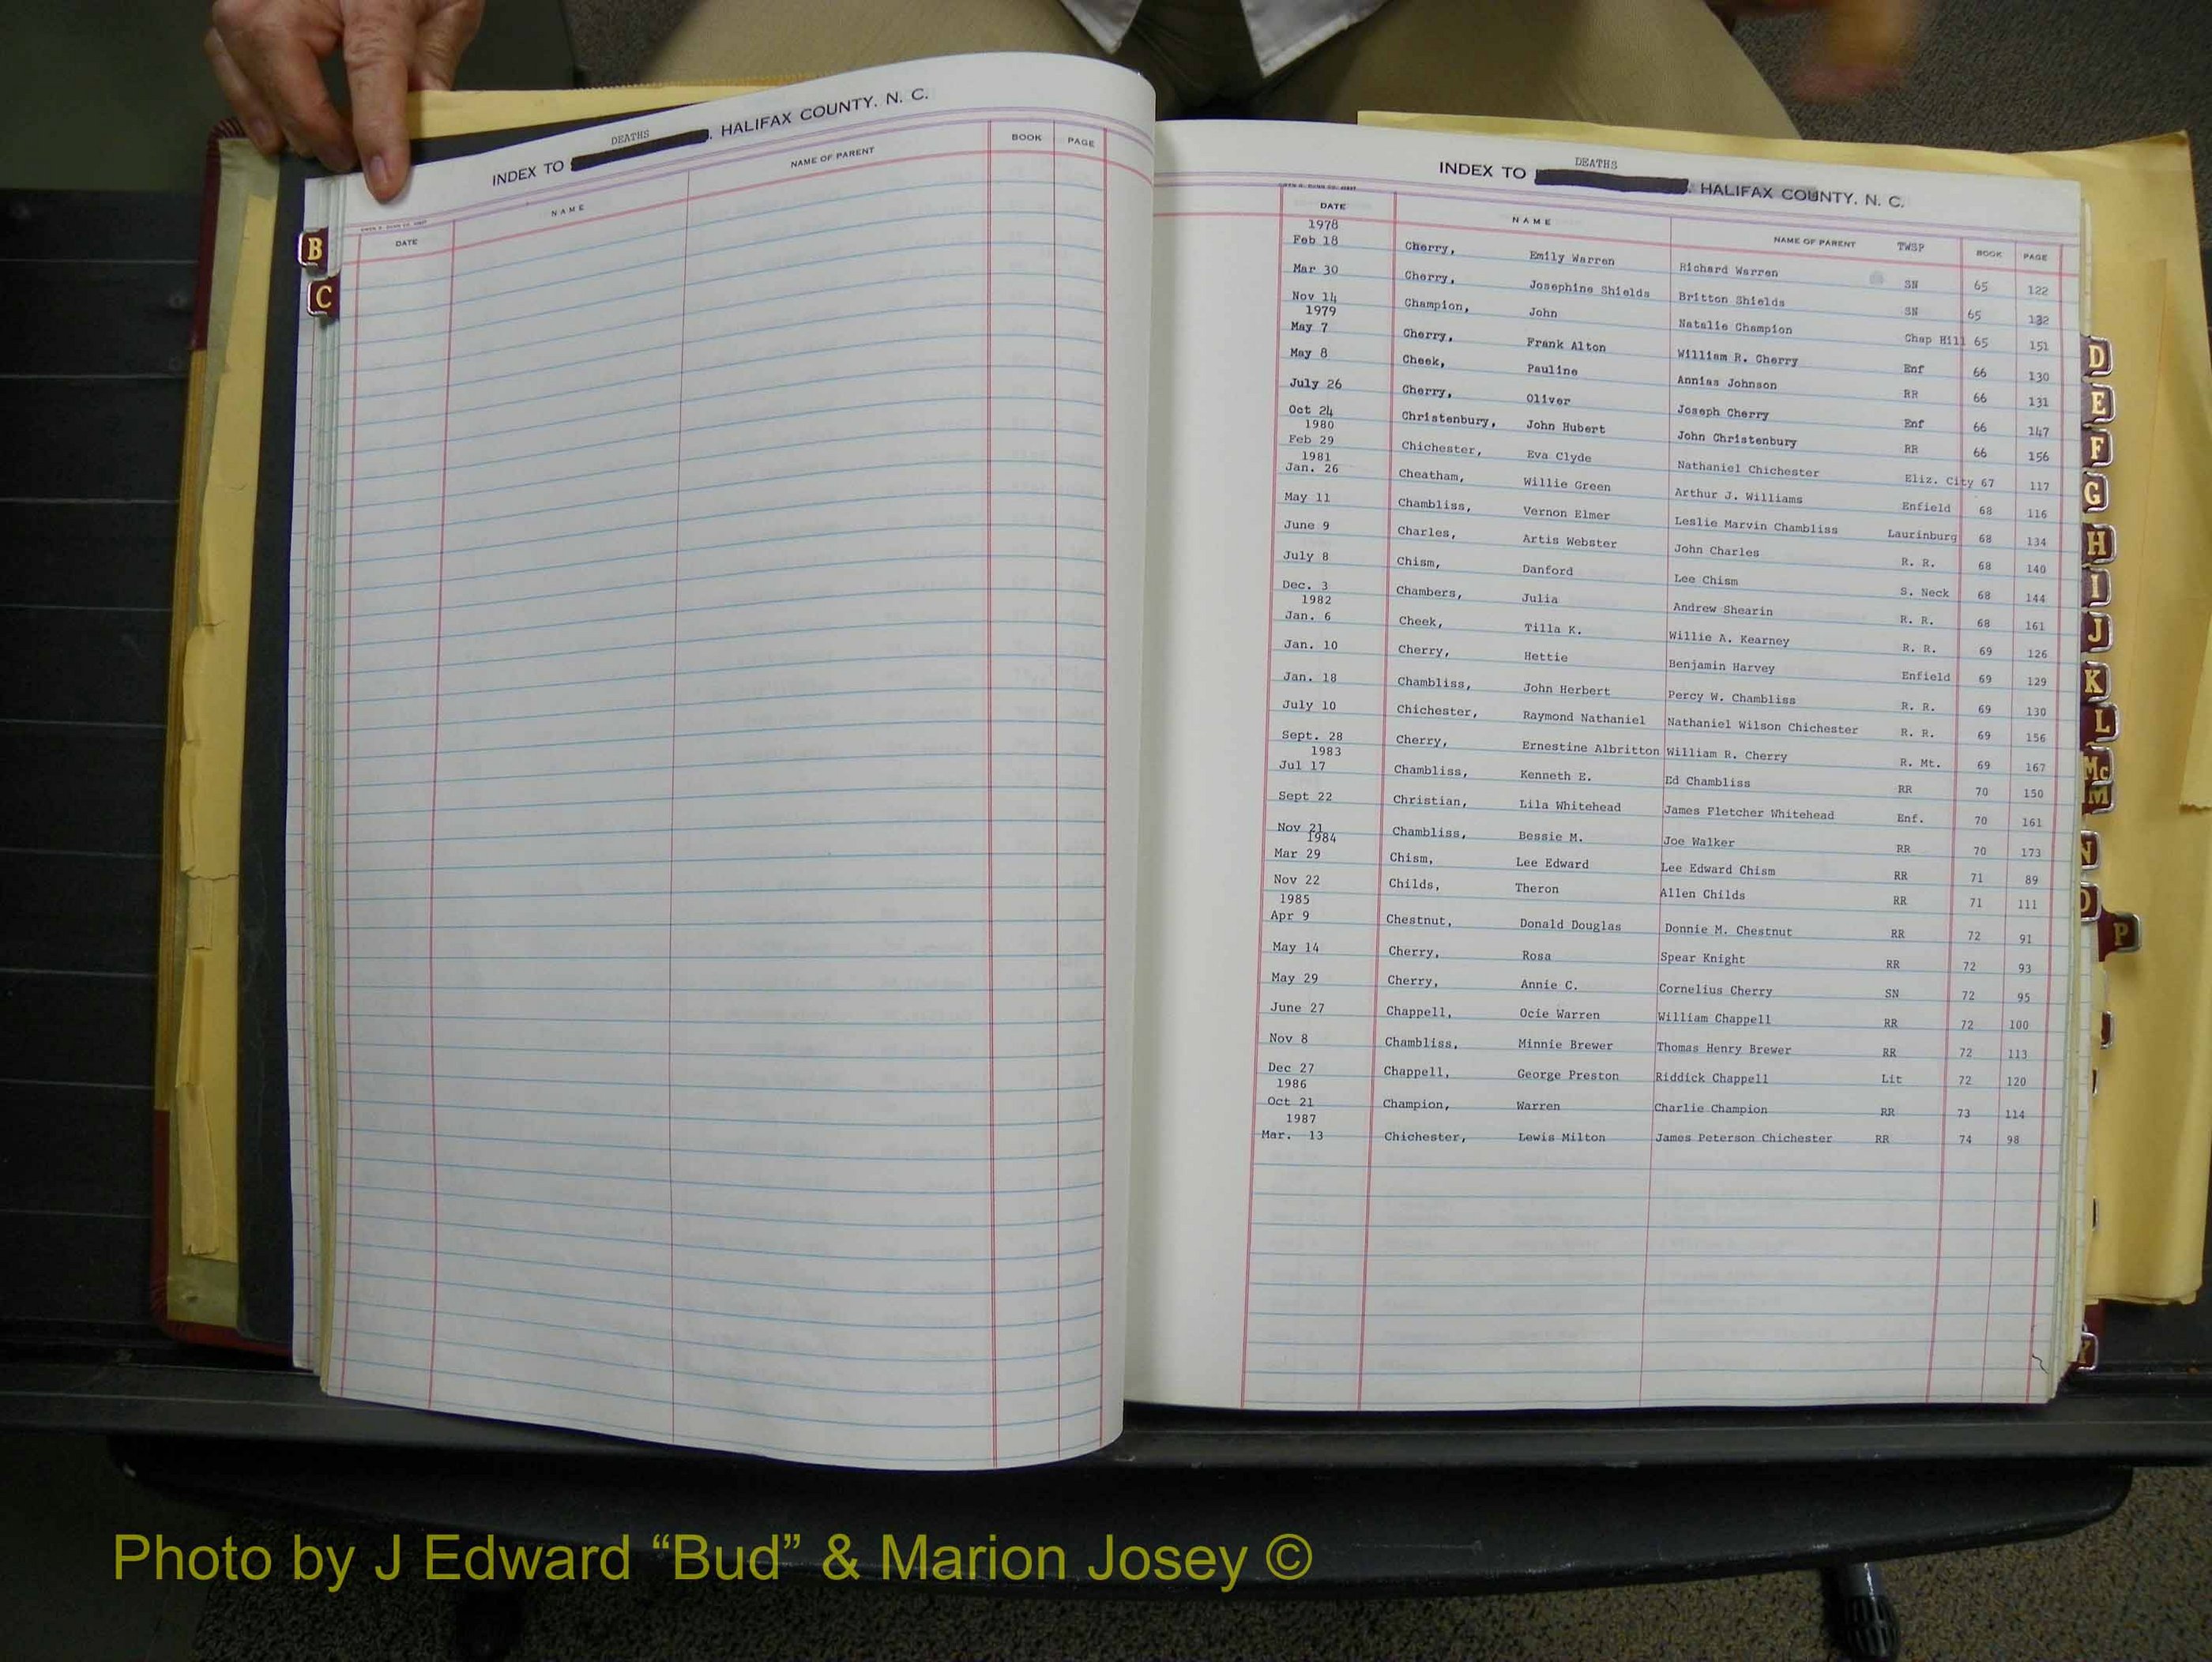 INDEX TO DEATHS, HALIFAX COUNTY, N. C.
DATE NAME NAME OF PARENT BOOK PAGE
B
C
INDEX TO DEATHS, HALIFAX COUNTY, N. C.
DATE NAME NAME OF PARENT TWSP BOOK PAGE
1978
Feb 18 Cherry, Emily Warren Richard Warren SN 65 122
Mar 30 Cherry, Josephine Shields Britton Shields SN 65 132
Nov 14 Champion, John Natalie Champion Chap Hill 65 151
1979
May 7 Cherry, Frank Alton William R. Cherry Enf 66 130
May 8 Cheek, Pauline Annias Johnson RR 66 131
July 26 Cherry, Oliver Joseph Cherry Enf 66 147
Oct 24 Christenbury, John Hubert John Christenbury RR 66 156
1980
Feb 29 Chichester, Eva Clyde Nathaniel Chichester Eliz. City 67 117
1981
Jan. 26 Cheatham, Willie Green Arthur J. Williams Enfield 68 116
May 11 Chambliss, Vernon Elmer Leslie Marvin Chambliss Laurinburg 68 134
June 9 Charles, Artis Webster John Charles R. R. 68 140
July 8 Chism, Danford Lee Chism S. Neck 68 144
Dec. 3 Chambers, Julia Andrew Shearin R. R. 68 161
1982
Jan. 6 Cheek, Tilla K. Willie A. Kearney R. R. 69 126
Jan. 10 Cherry, Hettie Benjamin Harvey Enfield 69 129
Jan. 18 Chambliss, John Herbert Percy W. Chambliss R. R. 69 130
July 10 Chichester, Raymond Nathaniel Nathaniel Wilson Chichester R. R. 69 156
Sept. 28 Cherry, Ernestine Albritton William R. Cherry R. Mt. 69 167
1983
Jul 17 Chambliss, Kenneth E. Ed Chambliss RR 70 150
Sept 22 Christian, Lila Whitehead James Fletcher Whitehead Enf. 70 161
Nov 21 Chambliss, Bessie M. Joe Walker RR 70 173
1984
Mar 29 Chism, Lee Edward Lee Edward Chism RR 71 89
Nov 22 Childs, Theron Allen Childs RR 71 111
1985
Apr 9 Chestnut, Donald Douglas Donnie M. Chestnut RR 72 91
May 14 Cherry, Rosa Spear Knight RR 72 93
May 29 Cherry, Annie C. Cornelius Cherry SN 72 95
June 27 Chappell, Ocie Warren William Chappell RR 72 100
Nov 8 Chambliss, Minnie Brewer Thomas Henry Brewer RR 72 113
Dec 27 Chappell, George Preston Riddick Chappell Lit 72 120
1986
Oct 21 Champion, Warren Charlie Champion RR 73 114
1987
Mar. 13 Chichester, Lewis Milton James Peterson Chichester RR 74 98
D
E
F
G
H
I
J
K
L
Mc
M
N
O
P
Photo by J Edward “Bud” & Marion Josey ©